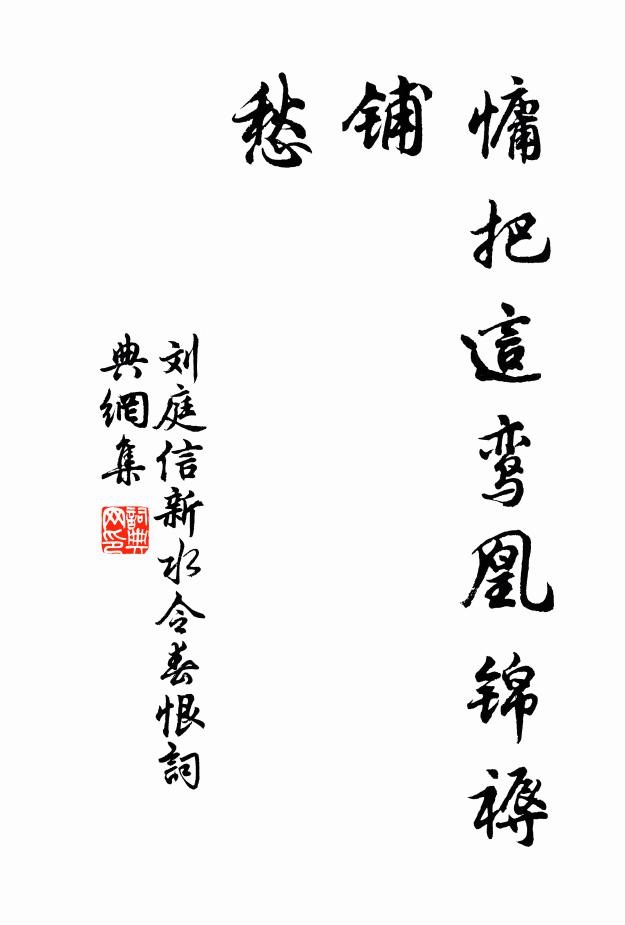 慵把這鸾凰锦褥
铺
愁
刘庭信新水令春恨詞
典網集
詞典
网印